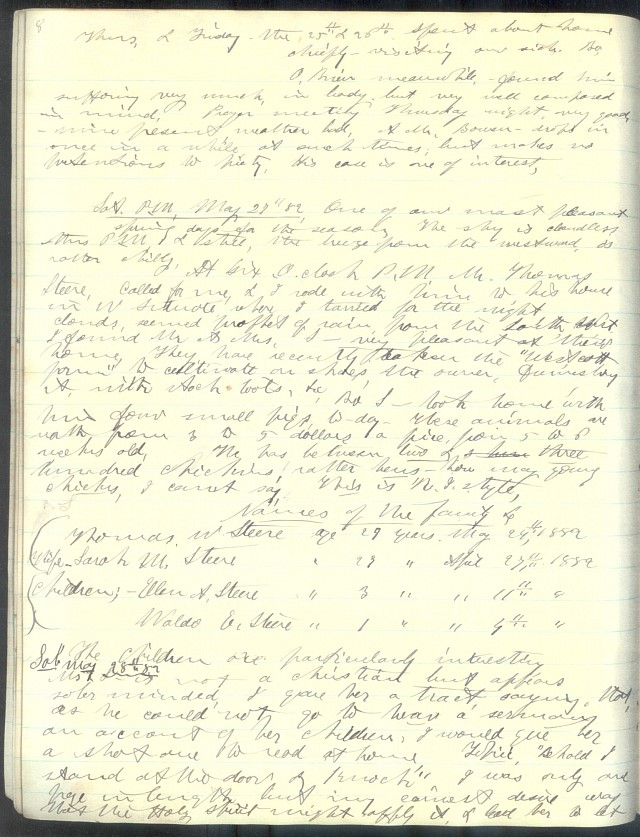 8
Thurs, & Friday the 25th & 26th. Spent about home
chiefly - visiting our sick. Bo,
O, Brien meanwhile - found him
suffering very much, in body, but very well composed
in mind, Prayer meeting Thursday night, very good,
- nine present weather bad, A Mr. Bowen - drops in
once in a while at such times, but makes no
pretentions to piety, His case is one of interest,
Sat. P.M, May 27th 82, One of our most pleasant
spring days for the season, The sky is cloudless
this P.M, & still, the breeze from the westward, is
rather chilly, At six O,clock P.M. Mr. Thomas
Steere, called for me, & I rode with him to his home
in W Scituate where I tarried for the night
clouds, seemed prophet of rain, from the South West
I found Mr & Mrs, S - very pleasant at their
home, They have recently taken the "Westcott
farm" to cultivate on shares the owner, furnishing
it, with stock tools, &c, Bo S - took home with
him four small pigs, to-day - these animals are
worth from 3 to 5 dollars a piece, from 5 to 8
weeks old, He has between two & three
hundred chickens, rather hens - how many young
chicks, I cannot say, This is R. I. style,
Names of the family &
Thomas, W Steere age 29 years. May 24th 1882
Wife - Sarah M. Steere " 27 " April 27th 1882
Children; - Ellen A. Steere " 3 " " 11th "
Waldo E. Steere " 1 " " 4th "
Sab May 28th 82 The children are particularly interesting
Mrs S is not a christian but appears
sober minded, I gave her a tract saying, that,
as she could not go to hear a sermon
on account of her children, I would give her
a short one to read at home Title, "Behold I
stand at the door & knock" I was only one
page in length but my earnest desire was
that the Holy Spirit might apply it, & lead her to